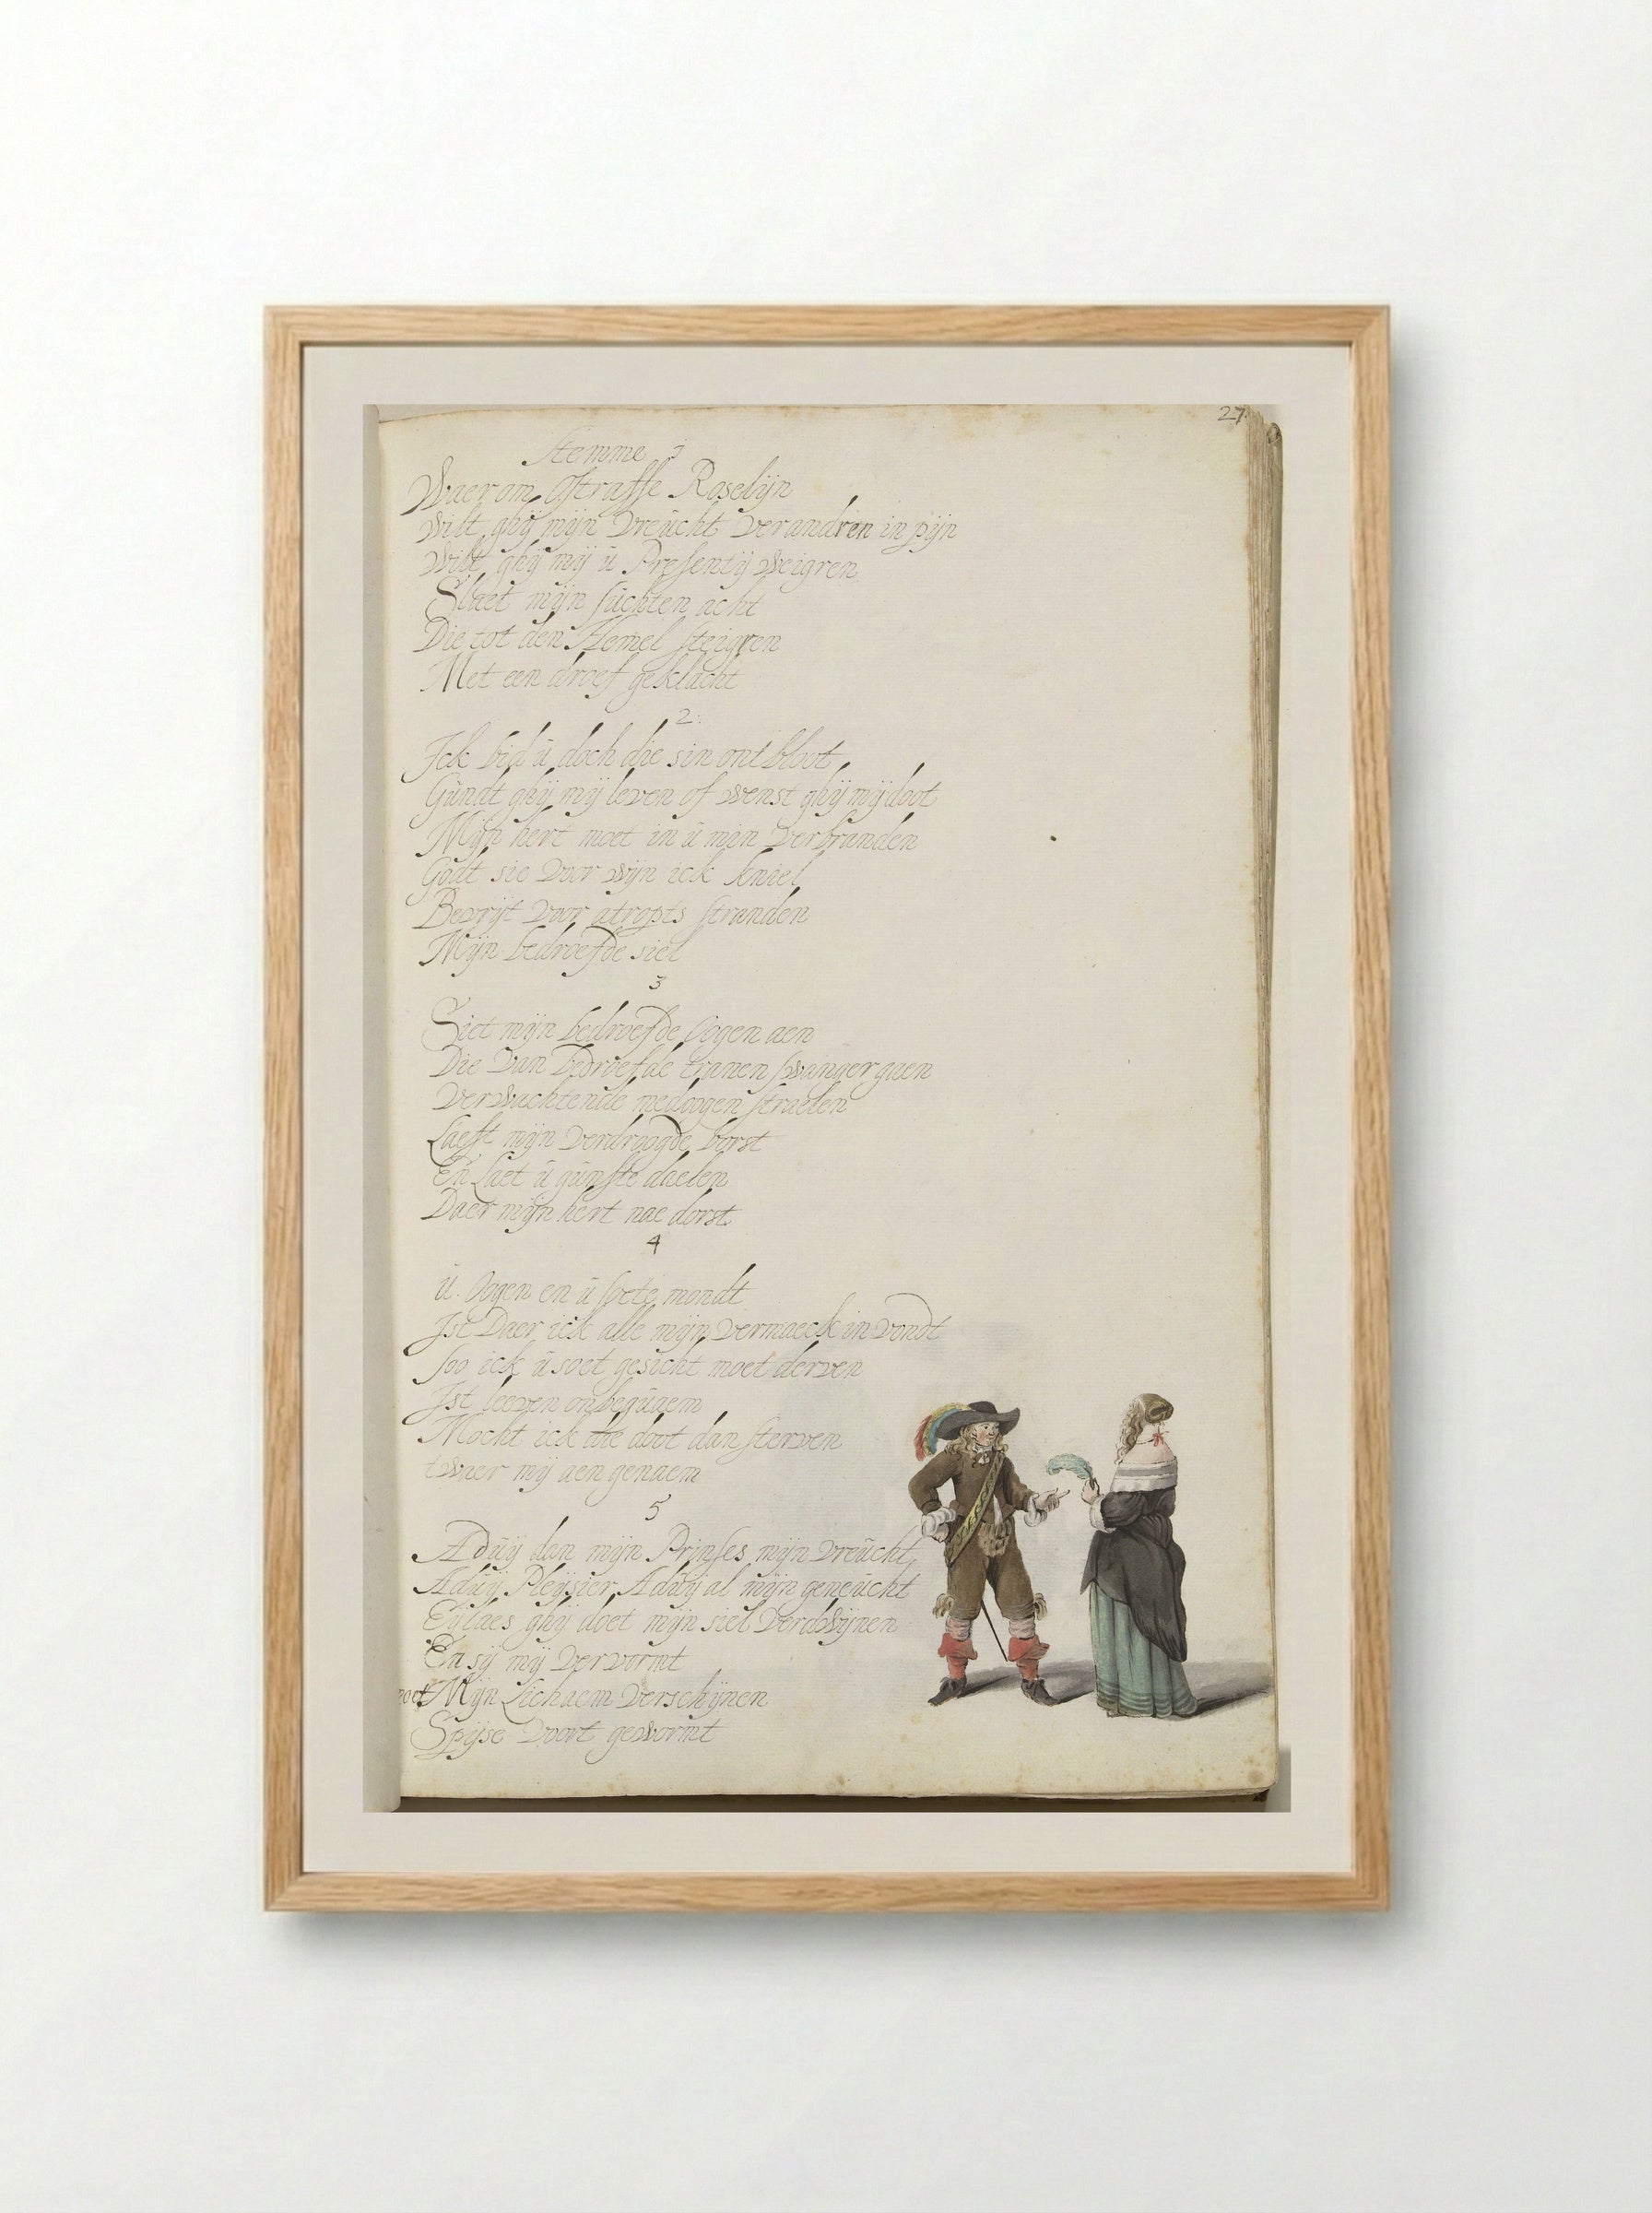 27
Stemme 1
Waerom Ostraffe Roselijn
Wilt ghij mijn vreucht verandren in pijn
Wilt ghij mij ü Presentij weigren
Slaet mijn suchten acht
Die tot den Hemel steigren
Met een droef geklacht
2:
Ick bid ü doch die sin ont bloot
Gundt ghij mij leven of wenst ghij mij doot
Mijn hert moet in ü min verbranden
Godt sie voor wijn ick kniel
Bevrijt voor atropts stranden
Mijn bedroefde siel
3
Siet mijn bedroefde oogen aen
Die van bedroefde tranen swanger gaen
Verwachtende medoogen straelen
Laeft mijn verdroogde borst
En Laet ü günste daelen
Daer mijn hert nae dorst
4
ü. Oogen en ü soete mondt
Ist Daer ick alle mijn vermaeck in vondt
soo ick ü soet gesicht moet derven
Ist leeven onbequaem
Mocht ick die doot dan sterven
twaer mij aen genaem
5
Aduij dan mijn Prinses mijn vreucht
Aduij Pleijsier Aduij al mijn geneucht
Eijlaes ghij doet mijn siel verdwijnen
En sij mij vervormt
moet Mijn Lichaem verschijnen
Spijse voort gewormt